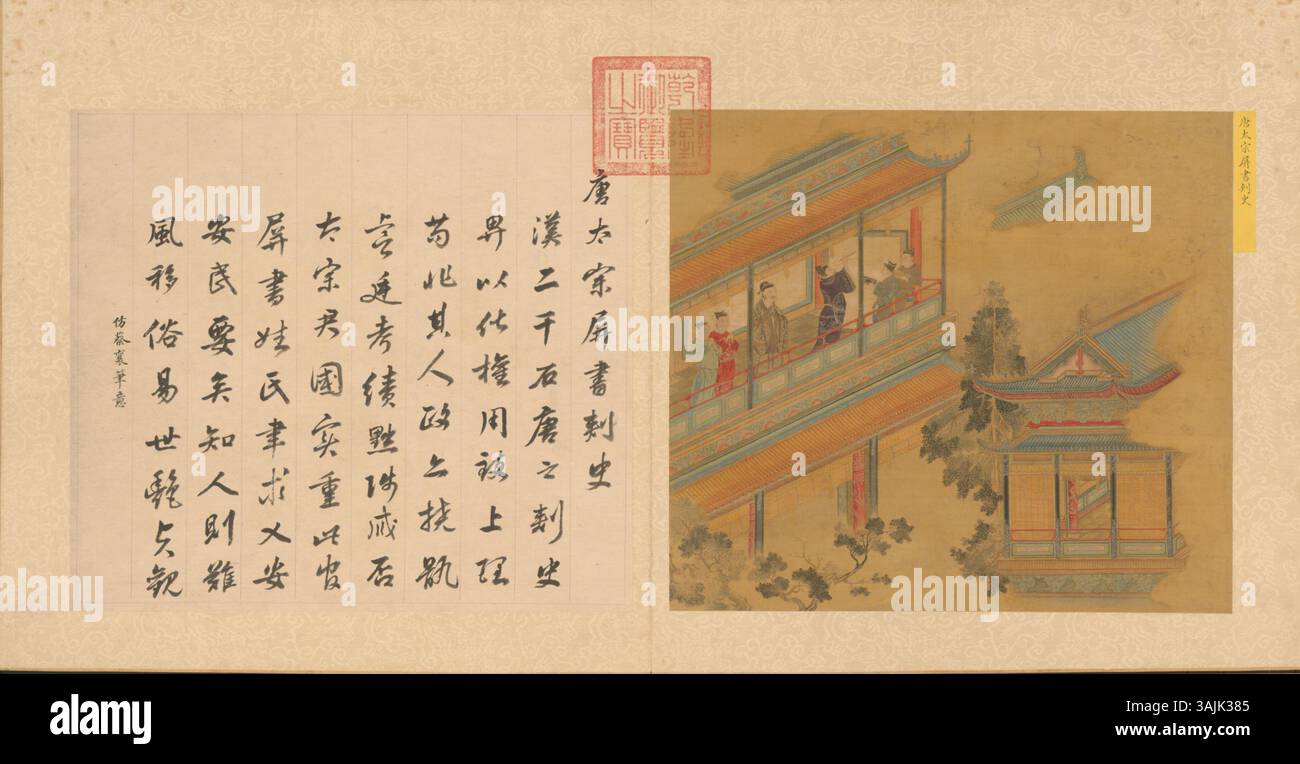 唐太宗屏書刺史
乾隆御覽之寶
唐太宗屏書刺史
漢二千石唐之刺史
畀以化權用上理
苟非其人政亦撓骫
廷考績黜陟臧否
太宗君國實重此官
屏書姓氏聿求乂安
安民要矣知人則難
風移俗易世艷貞觀
仿蔡襄筆意
alamy
Image ID: 3AJK385
www.alamy.com